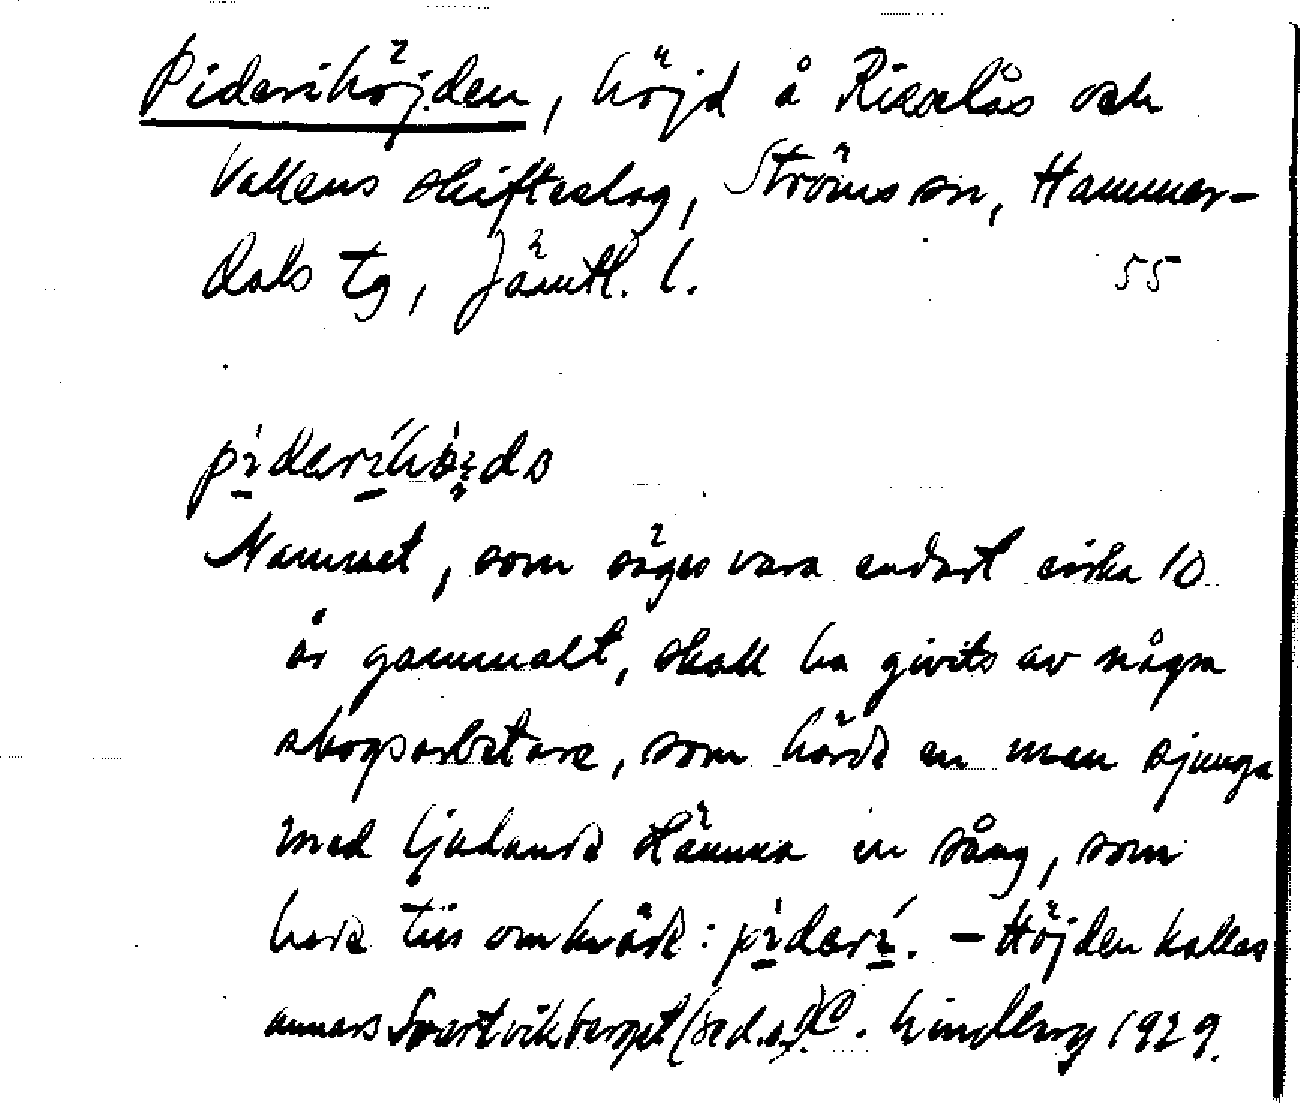 Piderihöjden, höjd å Risselås och
Vallens skifteslag, Ströms sn, Hammer-
dals tg, Jämtl. l. 55
pìderíhö̀idə
Namnet, som säges vara endast cirka 10
år gammalt, skall ha givits av några
skogsarbetare, som hörde en man sjunga
med ljudande stämma en sång, som
hade till omkväde: pìderí. – Höjden kallas
annars Svartvikberget (se d.o.). C. Lindberg 1929.